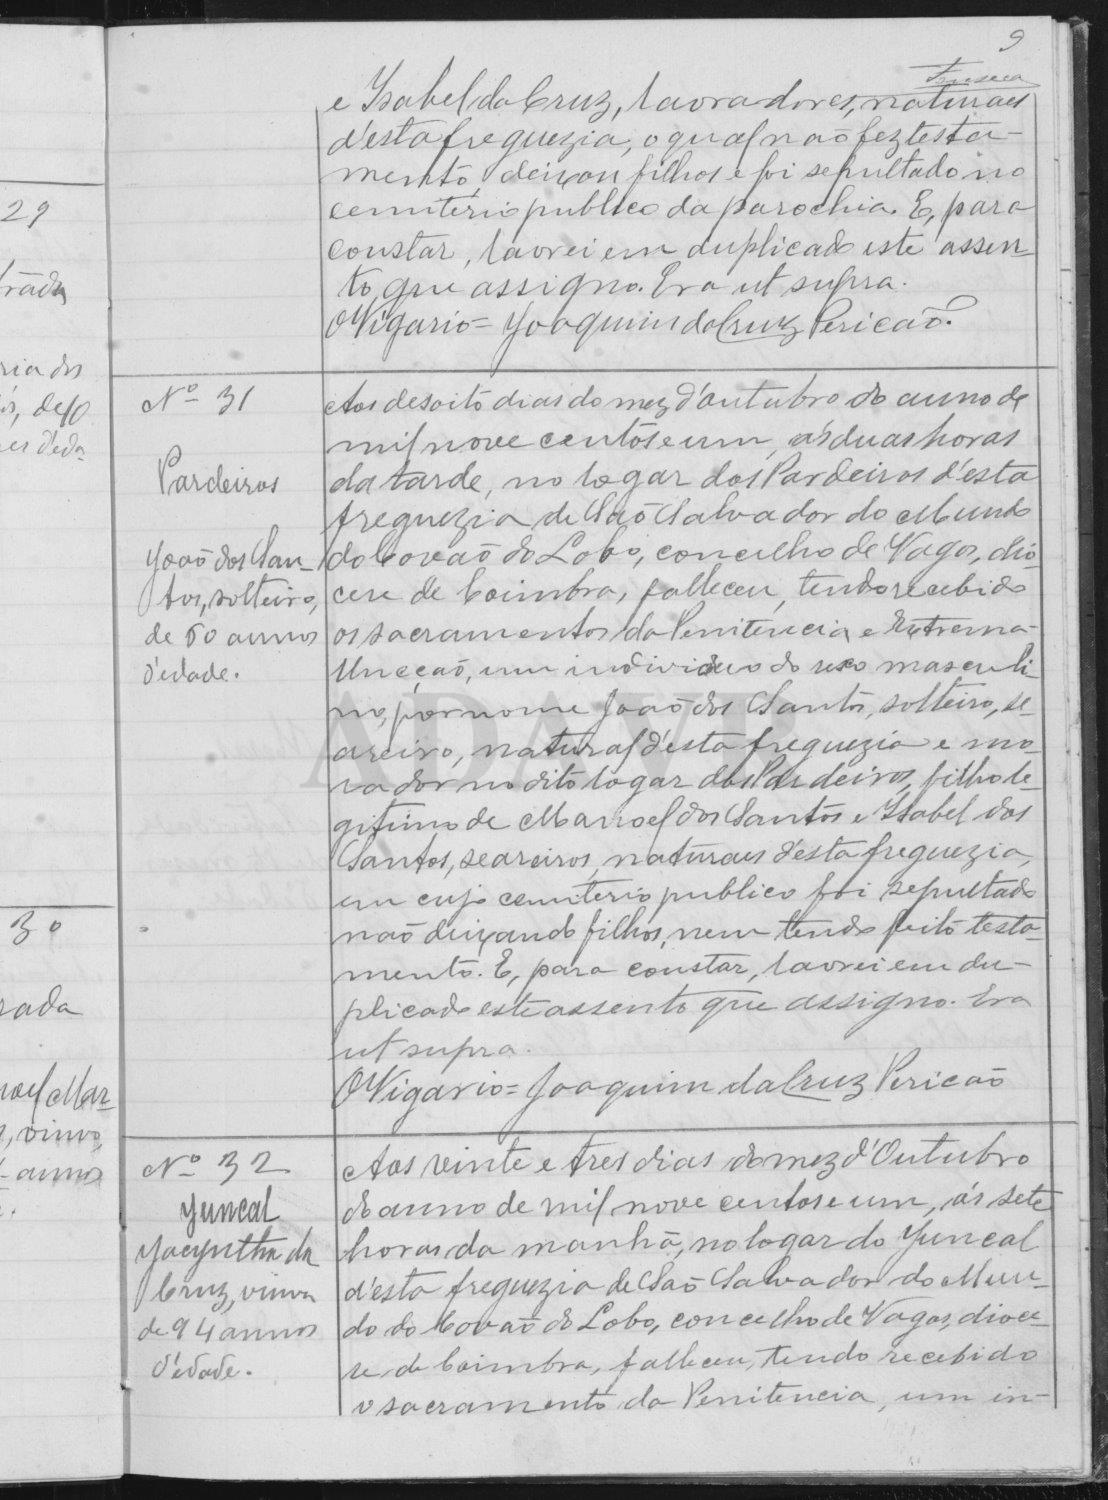 9
Fonseca
e Ysabel da Cruz, lavradores, naturaes
d'esta freguezia, o qual não fez testa-
mento, deixou filhos e foi sepultado no
cemiterio publico da parochia. E, para
constar, lavrei em duplicado este assen-
to, que assigno. Era ut supra.
O Vigario = Joaquim da Cruz Pericão.
29
30
Nº 31
Pardeiros
João dos San-
tos, solteiro,
de 60 annos
d'edade.
Aos desoito dias do mez d'outubro do anno de
mil nove centos e um, ás duas horas
da tarde, no logar dos Pardeiros d'esta
freguezia de São Salvador do Mundo
do Covão do Lobo, concelho de Vagos, dio-
cese de Coimbra, falleceu, tendo recebido
os sacramentos da Penitencia e Extrema-
Uncção, um individuo do sexo masculi-
no, por nome João dos Santos, solteiro, se-
areiro, natural d'esta freguezia e mo-
rador no dito logar dos Pardeiros, filho le-
gitimo de Manoel dos Santos e Ysabel dos
Santos, seareiros, naturaes d'esta freguezia,
em cujo cemiterio publico foi sepultado
não deixando filhos, nem tendo feito testa-
mento. E, para constar, lavrei em du-
plicado este assento que assigno. Era
ut supra.
O Vigario = Joaquim da Cruz Pericão
Nº 32
Juncal
Jacyntha da
Cruz, viuva
de 94 annos
d'edade.
Aos vinte e tres dias do mez d'Outubro
do anno de mil nove centos e um, ás sete
horas da manhã, no logar do Juncal
d'esta freguezia de São Salvador do Mun-
do do Covão do Lobo, concelho de Vagos, dioce-
se de Coimbra, falleceu, tendo recebido
o sacramento da Penitencia, um in-